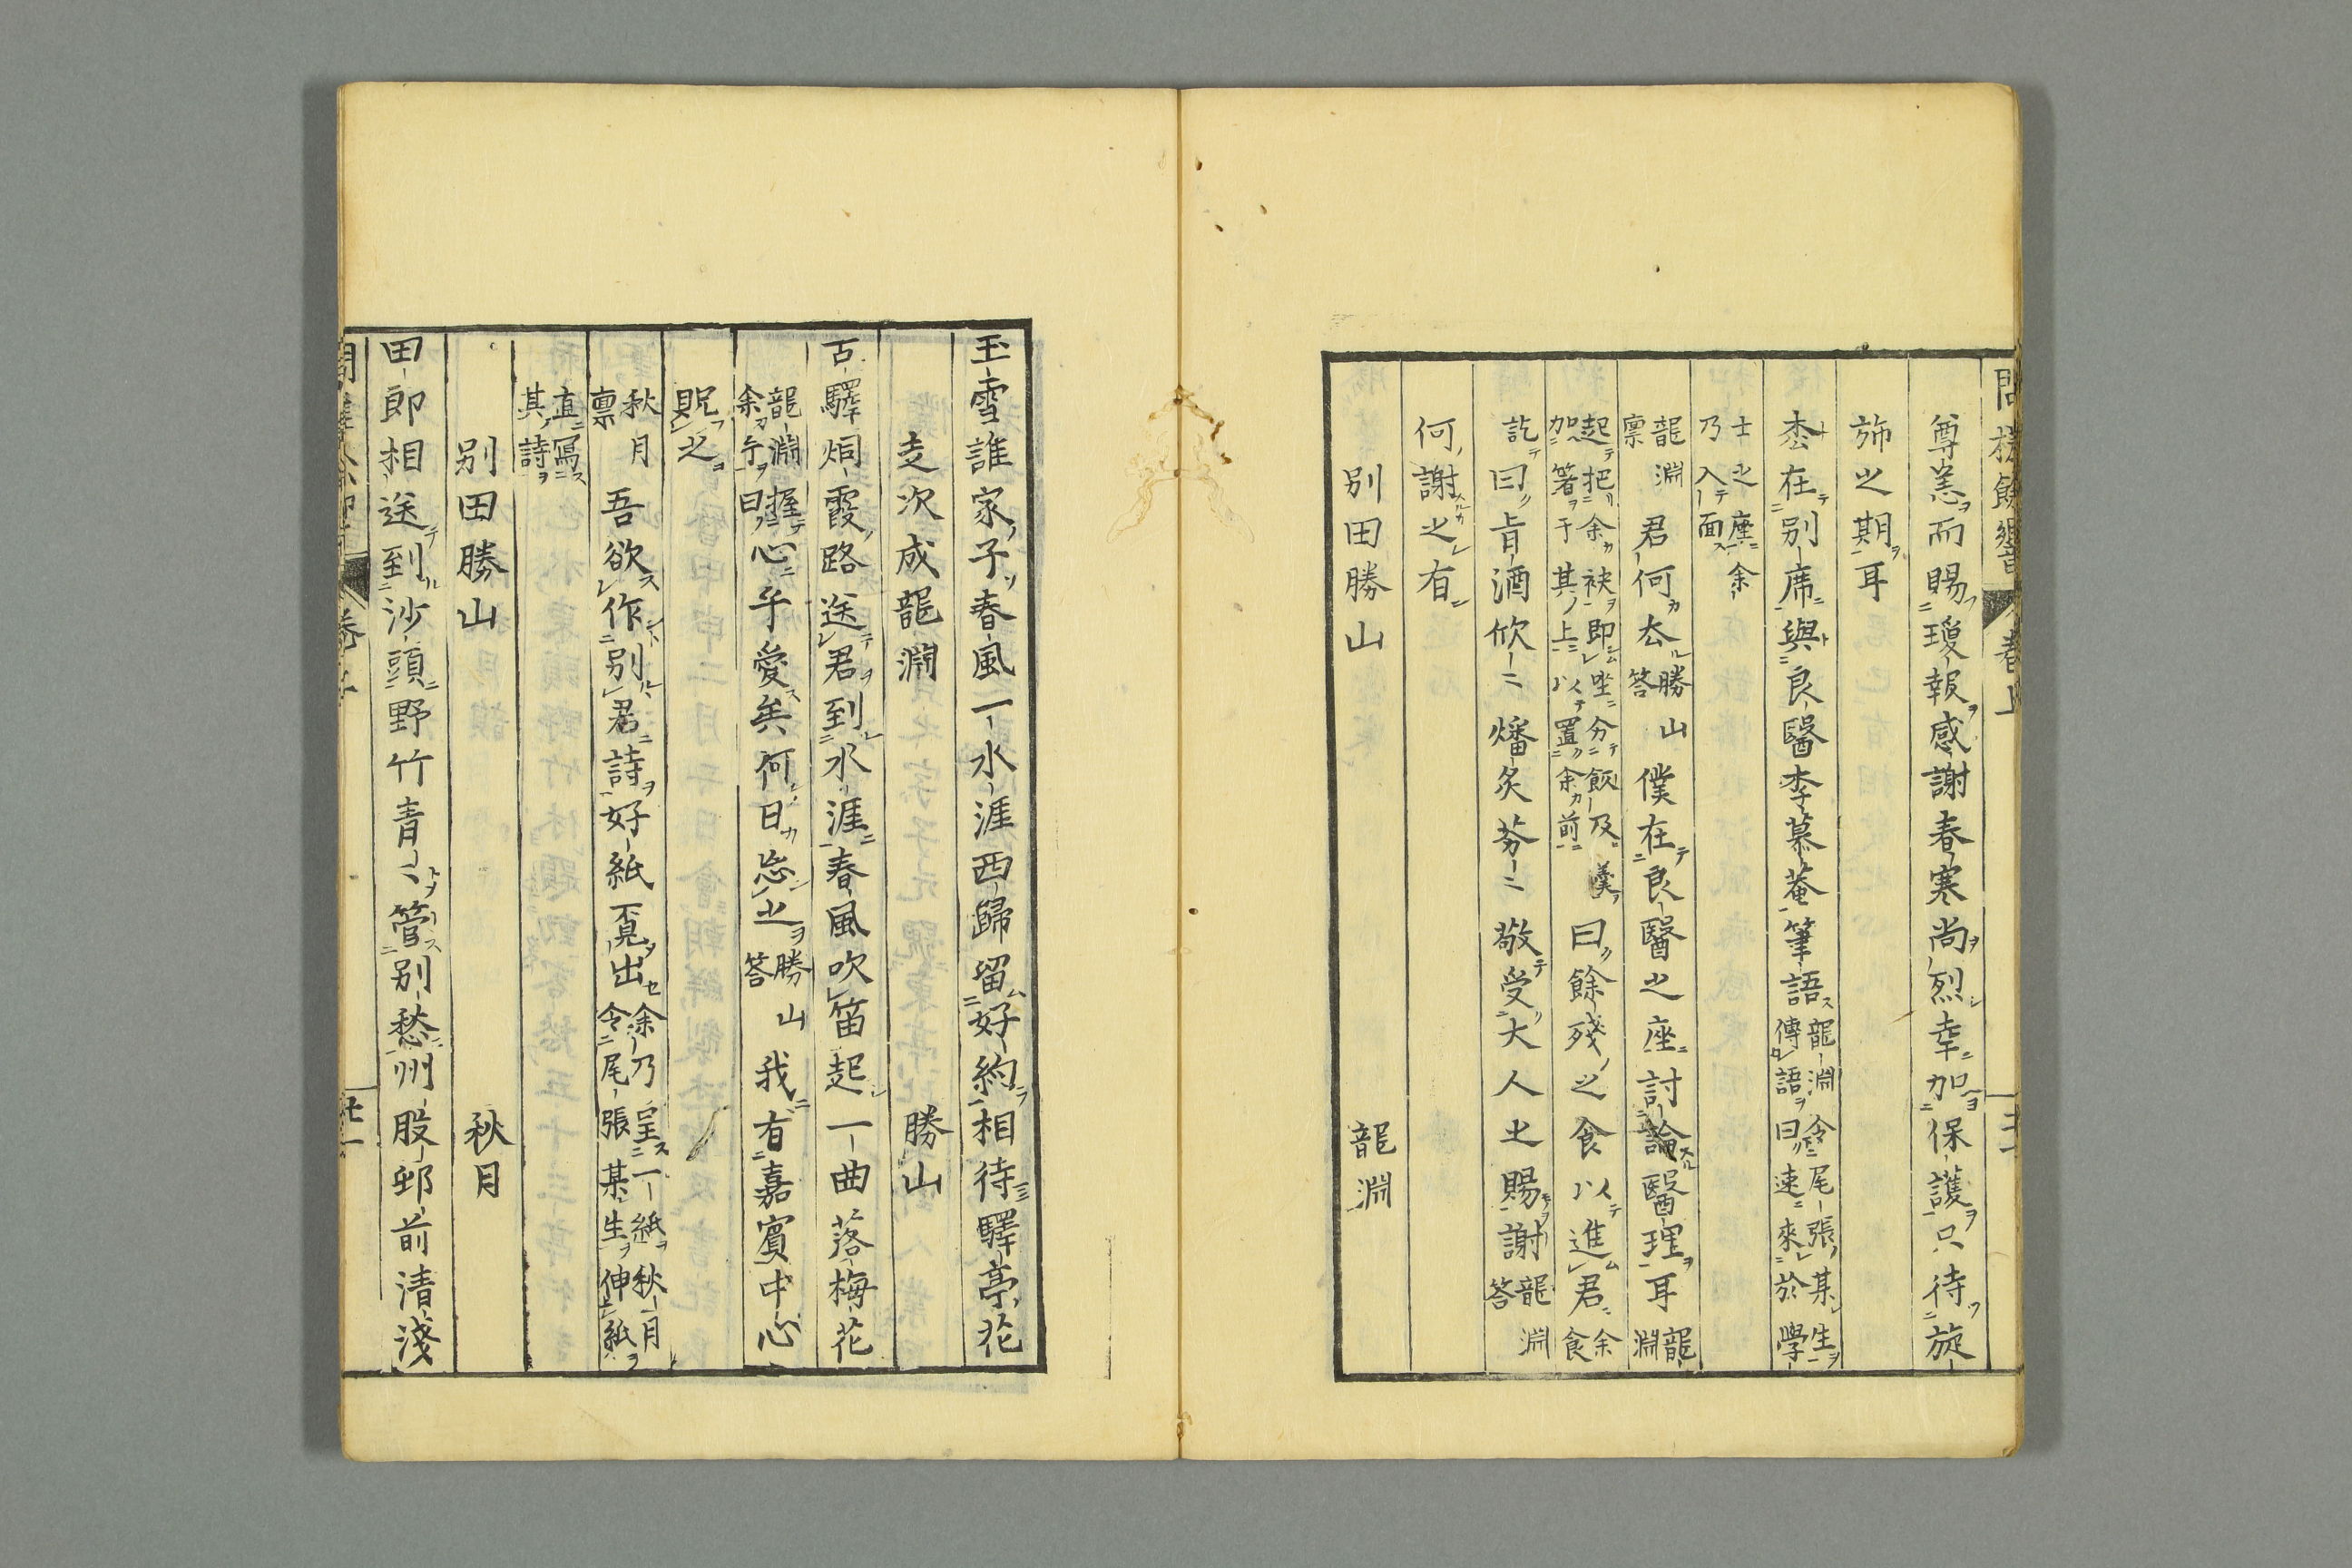 問槎餘響 卷上
尊恙而賜瓊報感謝春寒尚烈幸加保護只待旋
斾之期耳
在別席與良醫李慕菴筆語龍淵令尾張某生傳語曰速來於學
士之座余乃入面
龍淵稟 君何去勝山答 僕在良醫之座討論醫理耳龍淵
起把余袂即坐分飯及羹加箸于其上以置余前曰餘殘之食以進君余食
訖曰旨酒欣〻燔炙芬〻敬受大人之賜謝龍淵答
何謝之有
別田勝山 龍淵
玉雪誰家子春風一水涯西歸留好約相待驛亭花
走次成龍淵 勝山
古驛烟霞路送君到水涯春風吹笛起一曲落梅花
龍淵握余手曰心乎愛矣何日忘之勝山答 我有嘉賓中心
貺之
秋月稟 吾欲作別君詩好紙覓出余乃呈一紙秋月令尾張某生伸紙
直寫其詩
別田勝山 秋月
田郎相送到沙頭野竹青〻管別愁州股郵前清淺